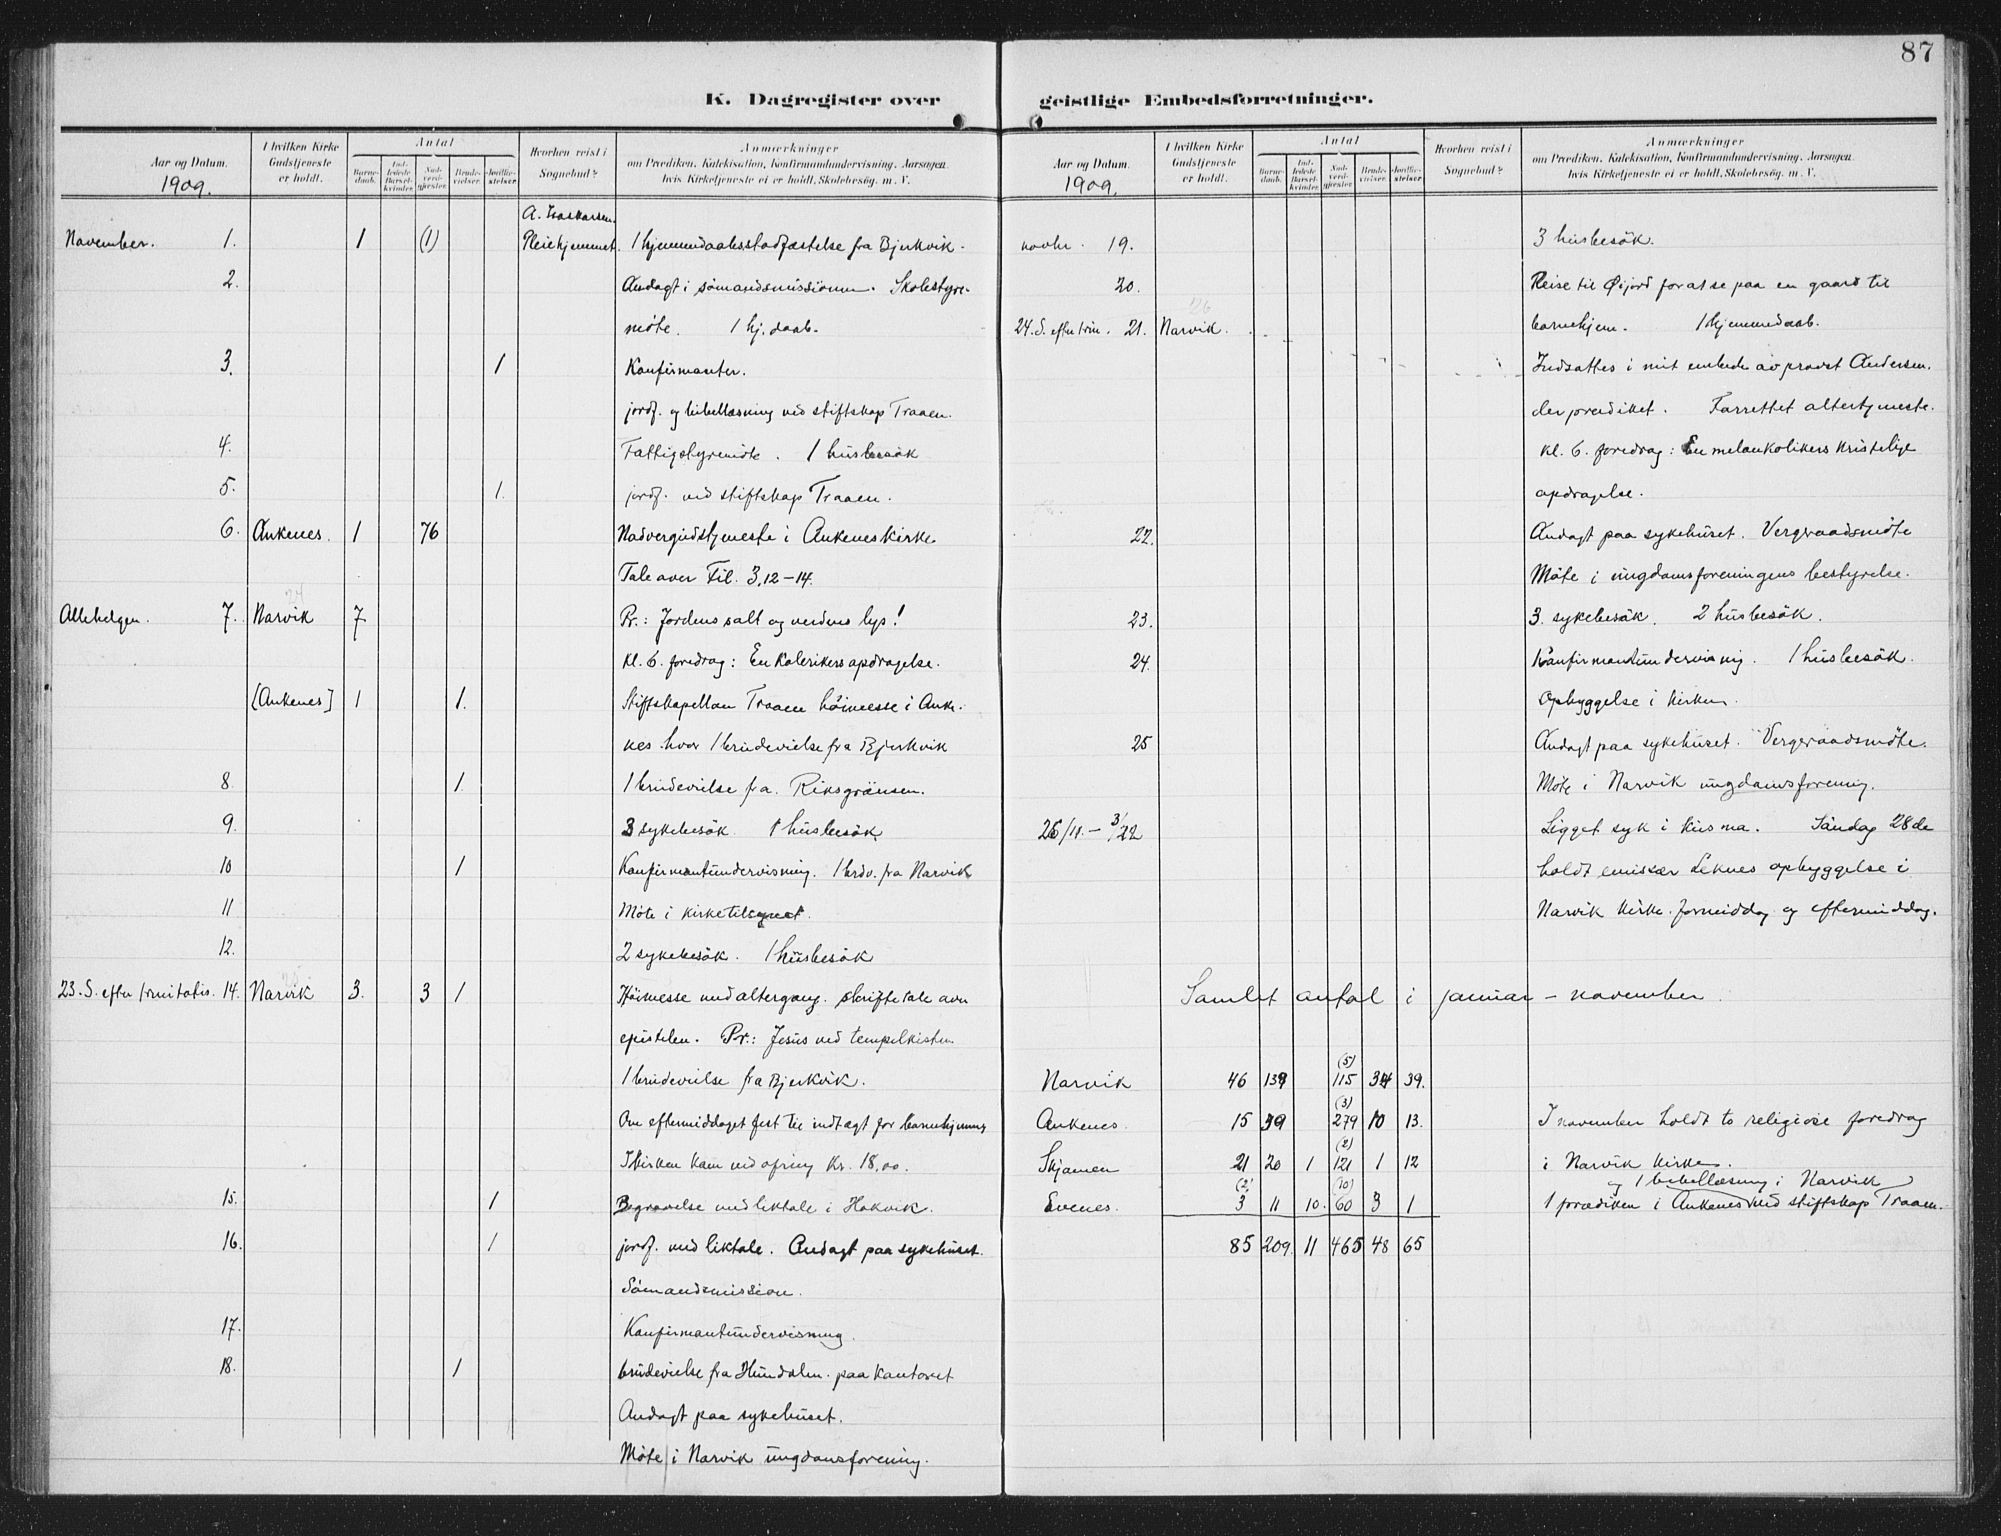 87
K. Dagregister over
Aar og Datum.
1909.
I hvilken Kirke Gudstjeneste er holdt.
Antal
Barne-daab.
Ind-ledede Barsel-kvinder.
Nad-verd-gjester.
Brude-vielser.
Jordfæ-stelser.
Hvorhen reist i Sognebud?
Anmærkninger
om Prædiken, Katekisation, Konfirmandundervisning, Aarsagen
hvis Kirketjeneste ei er holdt, Skolebesøg. m. V.
November. 1. 1 (1) Pleiehjemmet. 1 hjemmedaabsstadfæstelse fra Bjerkvik.
2. Andagt i sømandsmissionen. Skolestyre-
møte. 1 hj. daab.
3. 1 Konfirmanter.
jordf. og bibellæsning ved stiftskap Traaen.
4. Fattigstyremöte. 1 husbesök
5. 1. jordf. ved stiftskap Traaen.
6. Ankenes. 1 76 Nadvergudstjeneste i Ankenes Kirke
Tale over Fil. 3, 12-14.
Allehelgen. 7. Narvik 7 Pr.: Jordens salt og verdens lys!
24
kl. 6. foredrag: En kolerikers opdragelse.
[Ankenes] 1 1. Stiftskapellan Traaen höimesse i Anke-
nes hvor 1 brudevielse fra Bjerkvik
8. 1. 1 brudevielse fra Riksgränsen.
9. 3 sykebesök. 1 husbesök
10 1 Konfirmantundervisning. 1 brdv. fra Narvik
11 Möte i kirketilsynet.
12. 2 sykebesök. 1 husbesök
23. S. efter trinitatis. 14. Narvik 3. 3 1 Höimesse med altergang. skriftetale over
epistelen. Pr.: Jesus ved tempelkisten
1 brudevielse fra Bjerkvik.
Om eftermiddaget fest til indtægt for barnehjemmet
I kirken kom ved ofring Kr. 18,00.
15. 1 Begravelse med liktale i Hakvik.
16. 1 jordf. med liktale. Andagt paa sykehuset.
Sömandsmission.
17. Konfirmantundervisning.
18. 1 brudevielse fra Hundalen. paa kontoret
Andagt paa sykehuset.
Möte i Narvik ungdomsforening.
geistlige Embedsforretninger.
Aar og Datum.
1909.
I hvilken Kirke Gudstjeneste er holdt.
Antal
Barne-daab.
Ind-ledede Barsel-kvinder.
Nad-verd-gjester.
Brude-vielser.
Jordfæ-stelser.
Hvorhen reist i Sognebud?
Anmærkninger
om Prædiken, Katekisation, Konfirmandundervisning, Aarsagen
hvis Kirketjeneste ei er holdt, Skolebesøg. m. V.
novbr. 19. 3 husbesök.
20. Reise til Øijord for at se paa en gaard til
26
24. S. efter trin. 21. Narvik. barnehjem. 1 hjemmedaab.
Indsattes i mit embede av provst Andersen.
der prædiket. Forrettet altertjeneste.
kl. 6. foredrag: En melankolikers kristelige
opdragelse.
22. Andagt paa sykehuset. Vergeraadsmöte
Möte i ungdomsforeningens bestyrelse.
23. 3. sykebesök. 2 husbesök.
24. Konfirmantundervisnig. 1 husbesök.
Opbyggelse i kirken.
25 Andagt paa sykehuset. Vergeraadsmöte.
Möte i Narvik ungdomsforening.
26/11. - 3/12 Ligget syk i kusma. Söndag 28de
holdt emissær Leknes opbyggelse i
Narvik kirke. formiddag og eftermiddag.
Samlet antal i januar - november.
(5)
Narvik 46 139 115 34 39.
(3)
Ankenes. 15 39 279 10 13. I november holdt to religiöse foredrag
(2)
Skjomen 21 20 1 121 1 12 i Narvik kirke.
(2) (10) og 1 bibellæsning i Narvik
Evenes. 3 11 10. 60 3 1 1 prædiken i Ankenes ved stiftskap Traaen.
85 209. 11 465 48 65